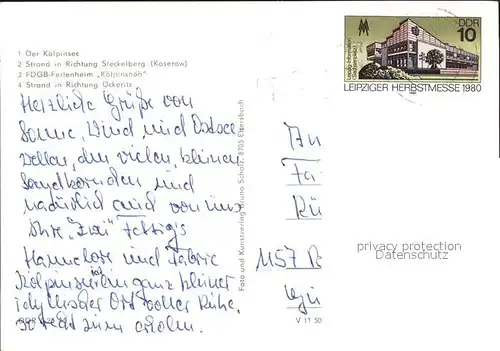 1 Der Kölpinsee
2 Strand in Richtung Steckelberg (Koserow)
3 FDGB-Ferienheim „Kölpinshöh"
4 Strand in Richtung Ückeritz
Herzliche Grüße von
Sonne, Wind und Ostsee
Wellen, den vielen, kleinen
Sandkörnchen und
natürlich auch von uns
Ihre "zwei"
Hannelore und
Kölpinsee ist ein ganz kleiner
idyllischer Ort voller Ruhe,
so recht zum erholen.
Foto und Kunstverlag Bruno Scholz, 8705 Ebersbach
V 11 50
DDR
10
Leipzig-Information
Sachsenplatz
LEIPZIGER HERBSTMESSE 1980
An
Fa
1157
privacy protection
Datenschutz